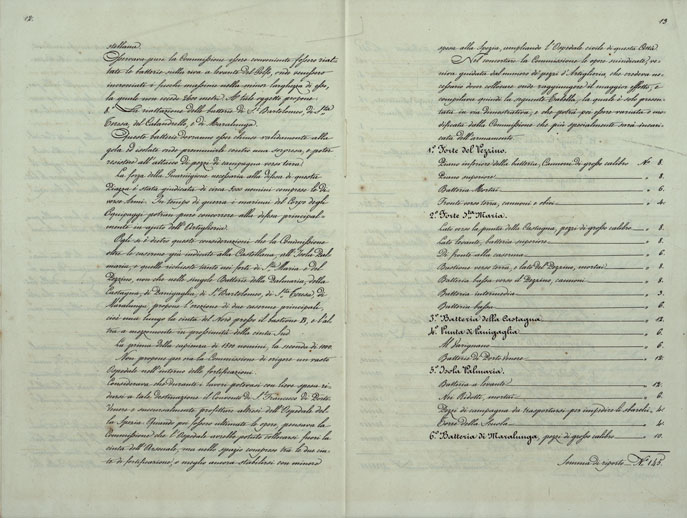 12.
stellana.
Osservava pure la Commissione essere conveniente fossero riat-
tate le batterie sulla riva a levante del Golfo, onde venissero
incrociati i fuochi massime nella minor larghezza di esso,
la quale non eccede 2600 metri. A tale oggetto propone
La riattazione delle batterie di S. Bartolomeo, di S.ta
Teresa, del Calandrello, e di Maralunga.
Queste batterie dovranno esser chiuse validamente alla
gola ed isolate onde premunirle contro una sorpresa, e poter
resistere all'attacco di pezzi di campagna verso terra.
La forza della Guarnigione necessaria alla difesa di questa
Piazza è stata giudicata di circa uomini compreso il Pre-
I marinai del Corpo degli
Equipaggi potrian pure concorrere alla difesa principal-
mente in ajuto dell'Artiglieria.
Egli si è dietro queste considerazioni che la Commissione
oltre le caserme già indicate alla Castellana, all'Isola Pal-
maria, e quelle richieste tanto nei forti di S.ta Maria e del
Pezzino, non che nelle singole Batterie della Palmaria, della
Castagna, di Panigaglia, di S.t Bartolomeo, di S.ta Teresa, di
Maralunga, propone l'erezione di due caserme principali,
cioè una lungo la cinta del Nord presso il bastione B, e l'al-
tra a mezzogiorno in prossimità della cinta Sud.
La prima della capienza di 1500 uomini, la seconda di 1000.
Non propone per via la Commissione di erigere un vasto
Ospedale nell'interno delle fortificazioni.
Considerava che durante i lavori potevasi con lieve spesa ri-
dursi a tale destinazione il Convento di S.t Francesco di Porto
Venere e successivamente profittare altresì dell'Ospedale del-
la Spezia. Quando poi fossero ultimate le opere, pensava la
Commissione che l'Ospedale avrebbe potuto collocarsi fuori la
cinta dell'Arsenale, ma nello spazio compreso tra le due cin-
te di fortificazione, o meglio ancora stabilirsi con minore
13.
spesa alla Spezia, ampliando l'Ospedale civile di questa Città.
Nel concertare la Commissione le opere suindicate, ve-
niva guidata dal numero di pezzi d'Artiglieria, che credeva ne-
cessario dover collocare onde raggiungere il maggior effetto, e
compilava quindi la seguente Tabella, la quale è solo presen-
tata in via dimostrativa, e che potrà poi essere variata e mo-
dificata dalla Commissione che più specialmente sarà incari-
cata dell'armamento.
1.° Forte del Pezzino.
Piano inferiore della batteria, Cannoni di grosso calibro N.° 8.
Piano superiore " 8.
Batteria Mortai " 6.
Fronti verso terra, cannoni e obici " 4.
2.° Forte S.ta Maria.
Lato verso la punta della Castagna, pezzi di grosso calibro " 8.
Lato Levante, batteria superiore " 8.
Di fronte alla caserma " 6.
Bastione verso terra, e lato del Pezzino, mortai " 8.
Batteria bassa verso il Pezzino, cannoni " 8.
Batteria intermedia " 8.
Batteria bassa " 6.
3.° Batteria della Castagna " 12.
4.° Punta di Panigaglia " 6.
Al Varignano " 6.
Batterie di Porto Venere " 12.
5.° Isola Palmaria.
Batteria a levante " 12.
Nei Ridotti, mortai " 6.
Pezzi di campagna da trasportarsi per impedire lo sbarco " 4.
Torre della Scuola " 4.
6.° Batteria di Maralunga, pezzi di grosso calibro " 10.
Somma di riporto N.°